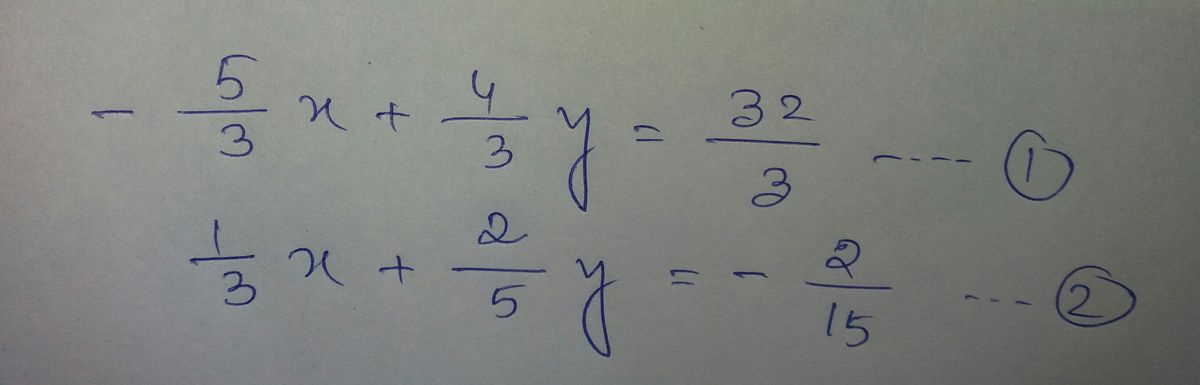 - 5/3 x + 4/3 y = 32/3 ----- ①
1/3 x + 2/5 y = - 2/15 --- ②